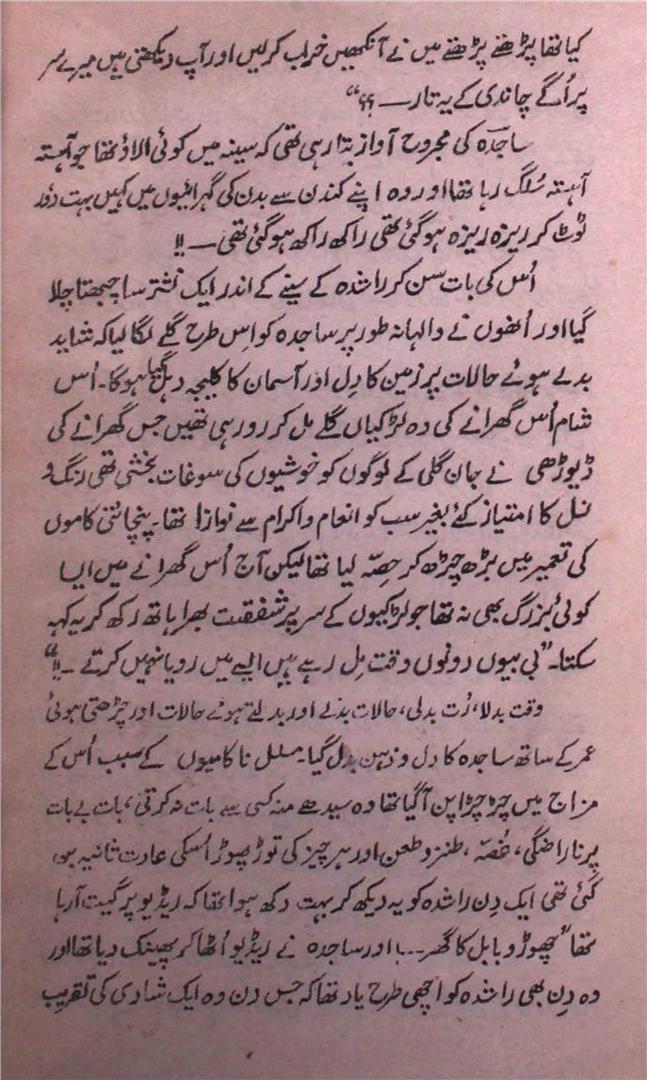 کیا تھا پڑھتے پڑھتے میں نے آنکھیں خراب کرلیں اور آپ دیکھتی ہیں میرے سر
پر اُگے چاندی کے یہ تار — ؟؟"
ساجدہ کی مجروح آواز بتا رہی تھی کہ سینہ میں کوئی الاؤ تھا جو آہستہ
آہستہ سُلگ رہا تھا اور وہ اپنے کندن سے بدن کی گہرائیوں میں کہیں بہت دُور
ٹوٹ کر ریزہ ریزہ ہوگئی تھی راکھ راکھ ہوگئی تھی — !!
اُس کی بات سن کر راشدہ کے سینے کے اندر ایک نشتر سا چبھتا چلا
گیا اور اُنھوں نے والہانہ طور پر ساجدہ کو اِس طرح گلے لگا لیا کہ شاید
بدلے ہوئے حالات پر زمین کا دِل اور آسمان کا کلیجہ دہل گیا ہوگا۔ اُس
شام اُس گھرانے کی دہ لڑکیاں گلے مل کر رو رہی تھیں جس گھرانے کی
ڈیوڑھی نے جان گلی کے لوگوں کو خوشیوں کی سوغات بخشی تھی رنگ و
نسل کا امتیاز کئے بغیر سب کو انعام و اکرام سے نوازا تھا۔ پنچائتی کاموں
کی تعمیر میں بڑھ چڑھ کر حِصّہ لیا تھا لیکن آج اُس گھرانے میں ایسا
کوئی بُزرگ بھی نہ تھا جو لڑکیوں کے سر پر شفقت بھرا ہاتھ رکھ کر یہ کہہ
سکتا۔ "بی بیوں دونوں وقت مِل رہے ہیں ایسے میں رویا نہیں کرتے —!!"
وقت بدلا، رُت بدلی، حالات بدلے اور بدلتے ہوئے حالات اور چڑھتی ہوئی
عمر کے ساتھ ساجدہ کا دِل و ذہن بدل گیا۔ مسلسل ناکامیوں کے سبب اُس کے
مزاج میں چڑچڑاپن آگیا تھا وہ سیدھے منہ کسی سے بات نہ کرتی، بات بے بات
پر ناراضگی، غُصّہ، طنز و طعن اور ہر چیز کی توڑ پھوڑ اُسکی عادت ثانیہ بن
گئی تھی ایک دِن راشدہ کو یہ دیکھ کر بہت دکھ ہوا تھا کہ ریڈیو پر گیت آرہا
تھا "چھوڑو بابل کا گھر... اور ساجدہ نے ریڈیو اُٹھا کر پھینک دیا تھا اور
وہ دِن بھی راشدہ کو اچھی طرح یاد تھا کہ جس دن وہ ایک شادی کی تقریب